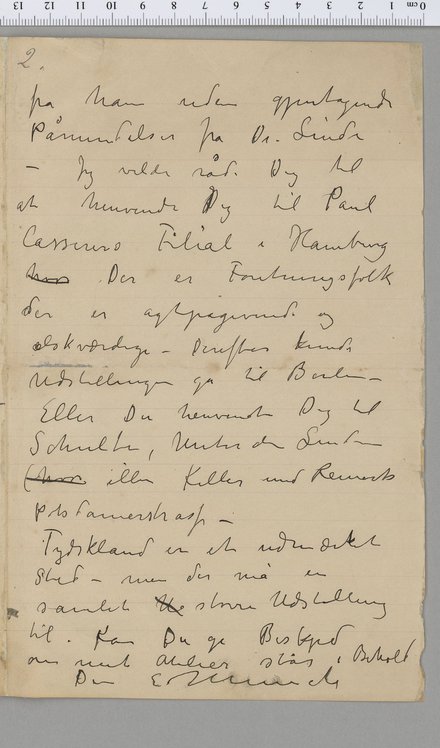 2.
fra ham uden gjentagende
Påmindelser fra Dr. Linde
– Jeg vilde råde Dig til
at henvende Dig til Paul
Cassirers Filial i Hamburg
hvor Der er Forretningsfolk
der er agtpågivende og
elskværdige – Derefter kunde
Udstillingen gå til Berlin –
Eller Du henvendte Dig til
Schulte, Unter den Linden
(hvor eller Keller und Reiner
Potsdamerstrasse –
Tydskland er et udmærket
Sted – men der må en
samlet större Udstilling
til. Kan Du gi Besked
om mit Atelier står i Behold
Din E Munch
13 12 11 10 9 8 7 6 5 4 3 2 1 0 cm